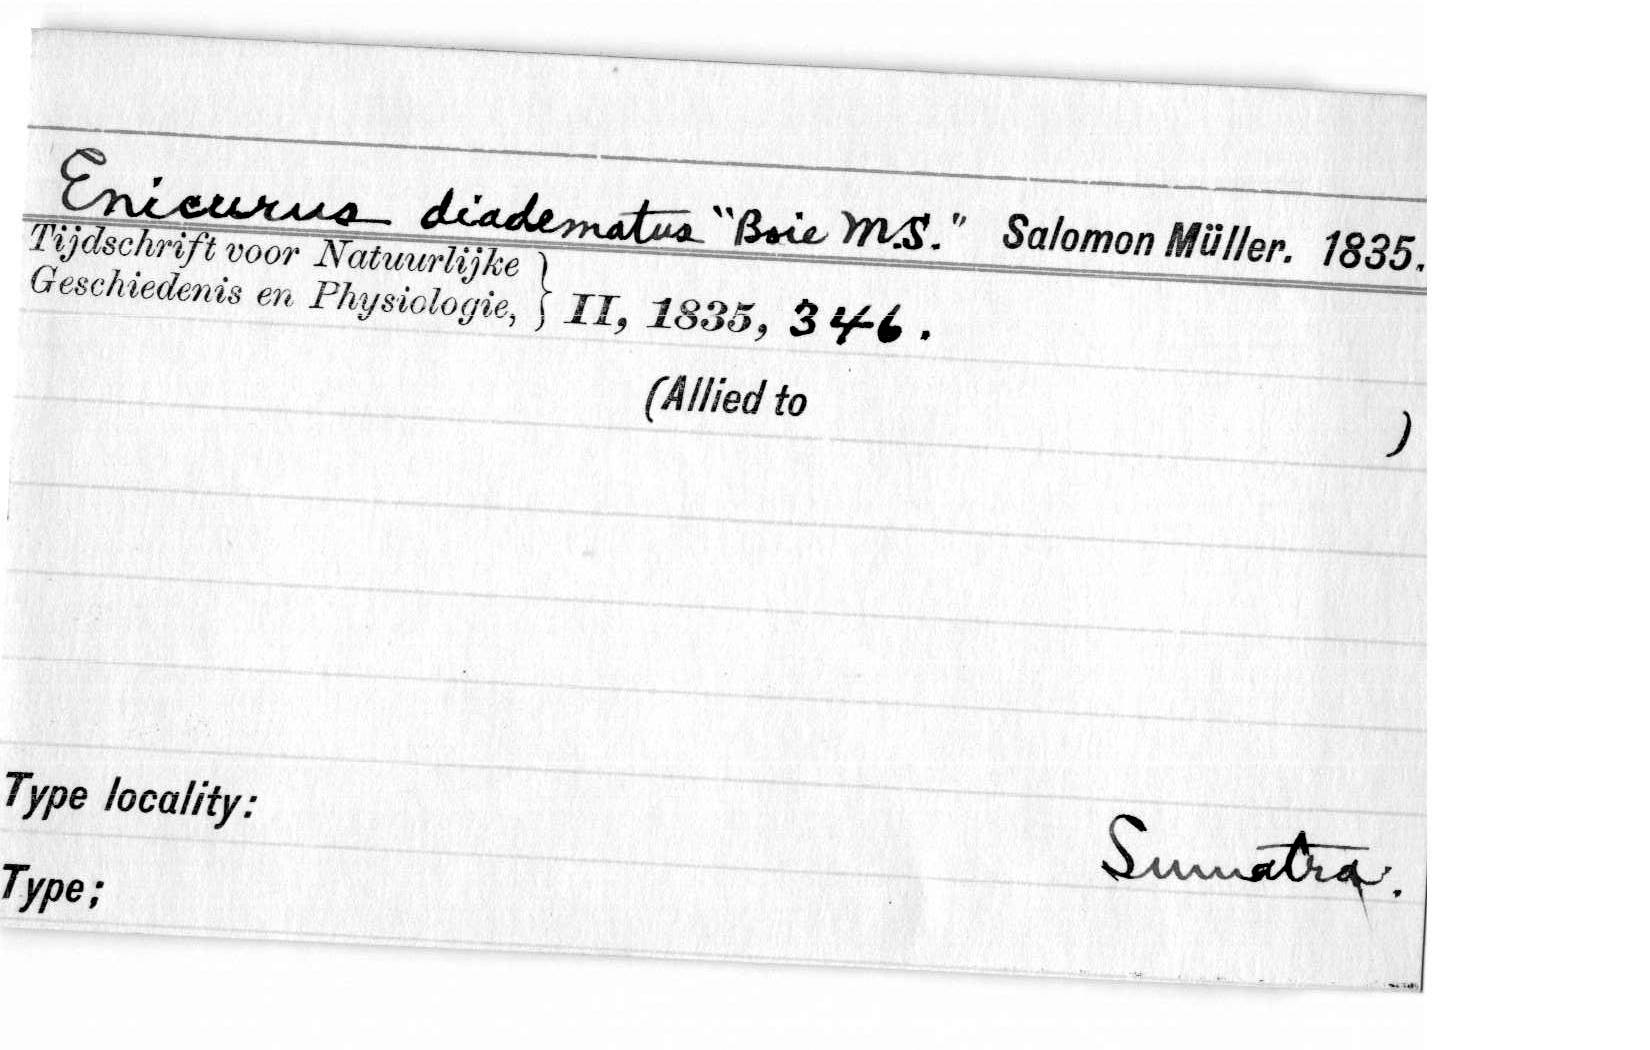 Enicurus diadematus "Boie M.S." Salomon Müller. 1835.
Tijdschrift voor Natuurlijke
Geschiedenis en Physiologie, } II, 1835, 346.
(Allied to )
Type locality:
Sumatra.
Type;